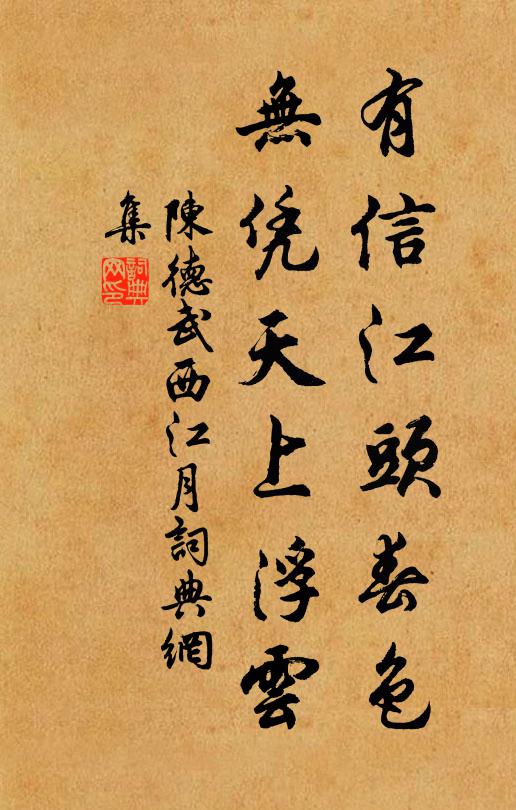 有信江頭春色
無凭天上浮雲
陳德武西江月詞典網
集
詞典
网印